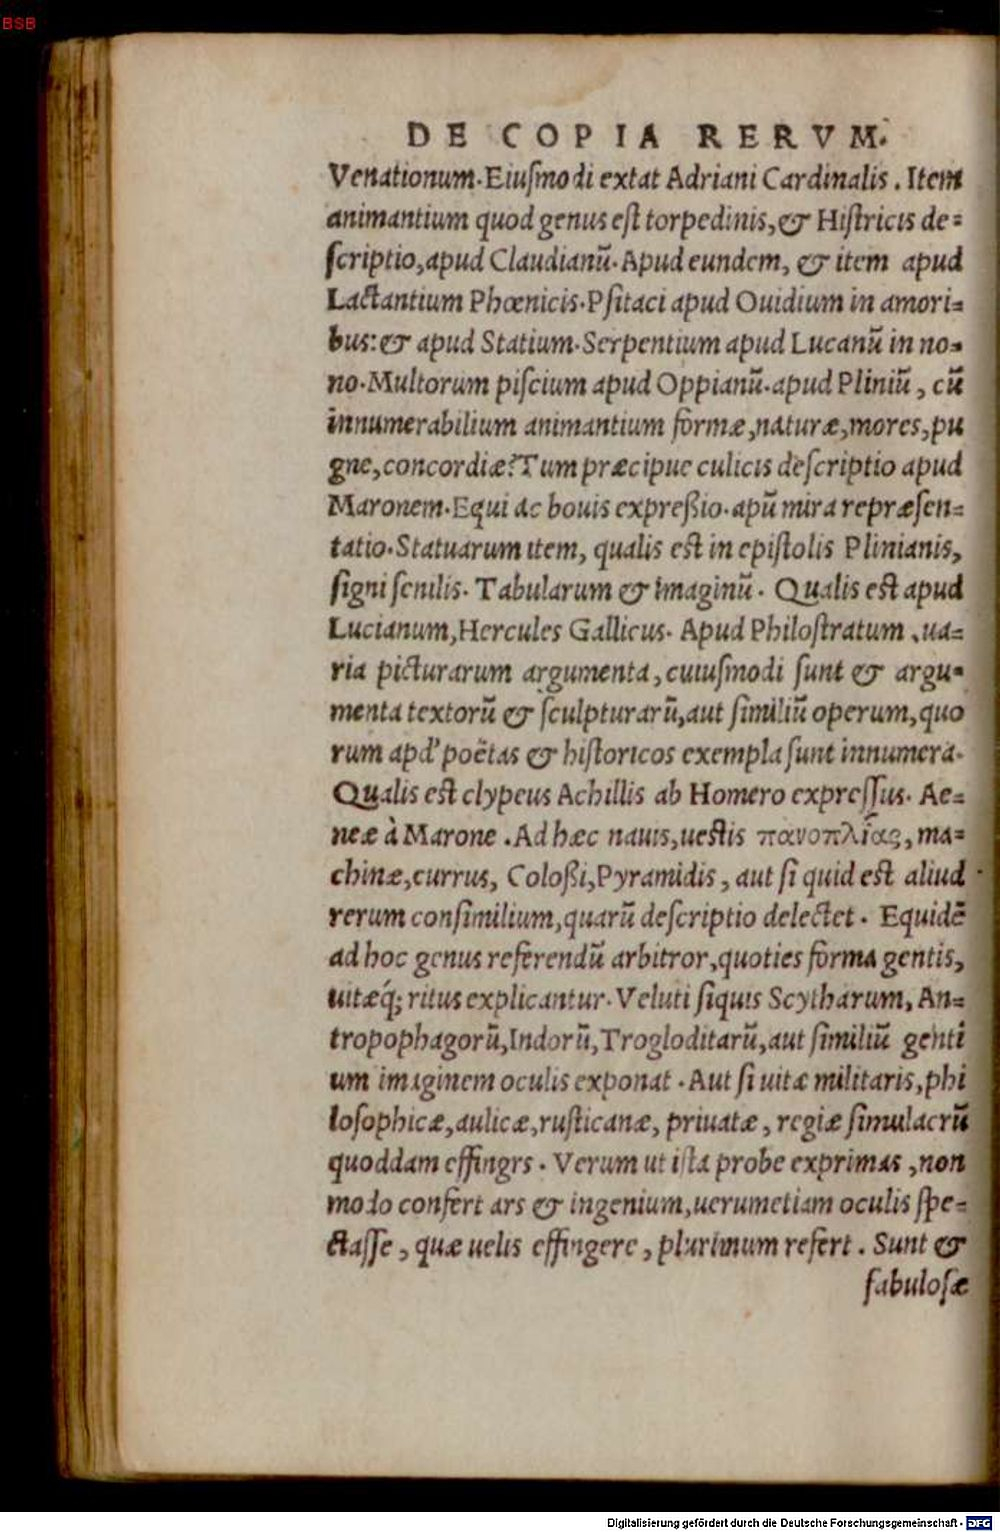 BSB
DE COPIA RERVM.
Venationum. Eiuſmodi extat Adriani Cardinalis. Item
animantium quod genus eſt torpedinis, & Hiſtricis de=
ſcriptio, apud Claudianũ. Apud eundem, & item apud
Lactantium Phœnicis. Pſitaci apud Ouidium in amori=
bus: & apud Statium. Serpentium apud Lucanũ in no=
no. Multorum piſcium apud Oppianũ. apud Pliniũ, cũ
innumerabilium animantium formæ, naturæ, mores, pu
gne, concordiæ? Tum præcipue culicis deſcriptio apud
Maronem. Equi ac bouis expreßio. apũ mira repræſen=
tatio. Statuarum item, qualis eſt in epiſtolis Plinianis,
ſigni ſenilis. Tabularum & imaginũ. Qualis eſt apud
Lucianum, Hercules Gallicus. Apud Philoſtratum, ua=
ria picturarum argumenta, cuiuſmodi ſunt & argu=
menta textorũ & ſculpturarũ, aut ſimiliũ operum, quo
rum apd' poëtas & hiſtoricos exempla ſunt innumera.
Qualis eſt clypeus Achillis ab Homero expreſſus. Ae=
neæ à Marone. Ad hæc nauis, ueſtis πανοπλίας, ma=
chinæ, currus, Coloßi, Pyramidis, aut ſi quid eſt aliud
rerum conſimilium, quarũ deſcriptio delectet. Equidẽ
ad hoc genus referendũ arbitror, quoties forma gentis,
uitæq́; ritus explicantur. Veluti ſiquis Scytharum, An=
tropophagorũ, Indorũ, Trogloditarũ, aut ſimiliũ genti
um imaginem oculis exponat. Aut ſi uitæ militaris, phi
loſophicæ, aulicæ, ruſticanæ, priuatæ, regiæ ſimulacrũ
quoddam effingrs. Verum ut iſta probe exprimas, non
modo confert ars & ingenium, uerumetiam oculis ſpe=
ctaſſe, quæ uelis effingere, plurimum refert. Sunt &
fabuloſæ
Digitalisierung gefördert durch die Deutsche Forschungsgemeinschaft - DFG